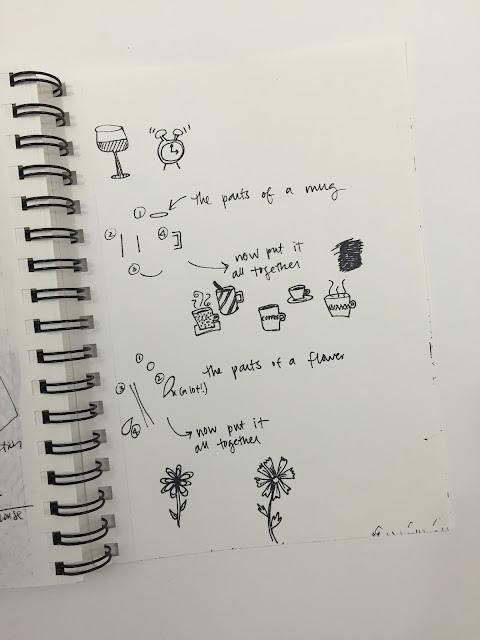 ① the parts of a mug
② ④
③
now put it
all together
COFFEE
①
② x (a lot!) the parts of a flower
③
④
now put it
all together